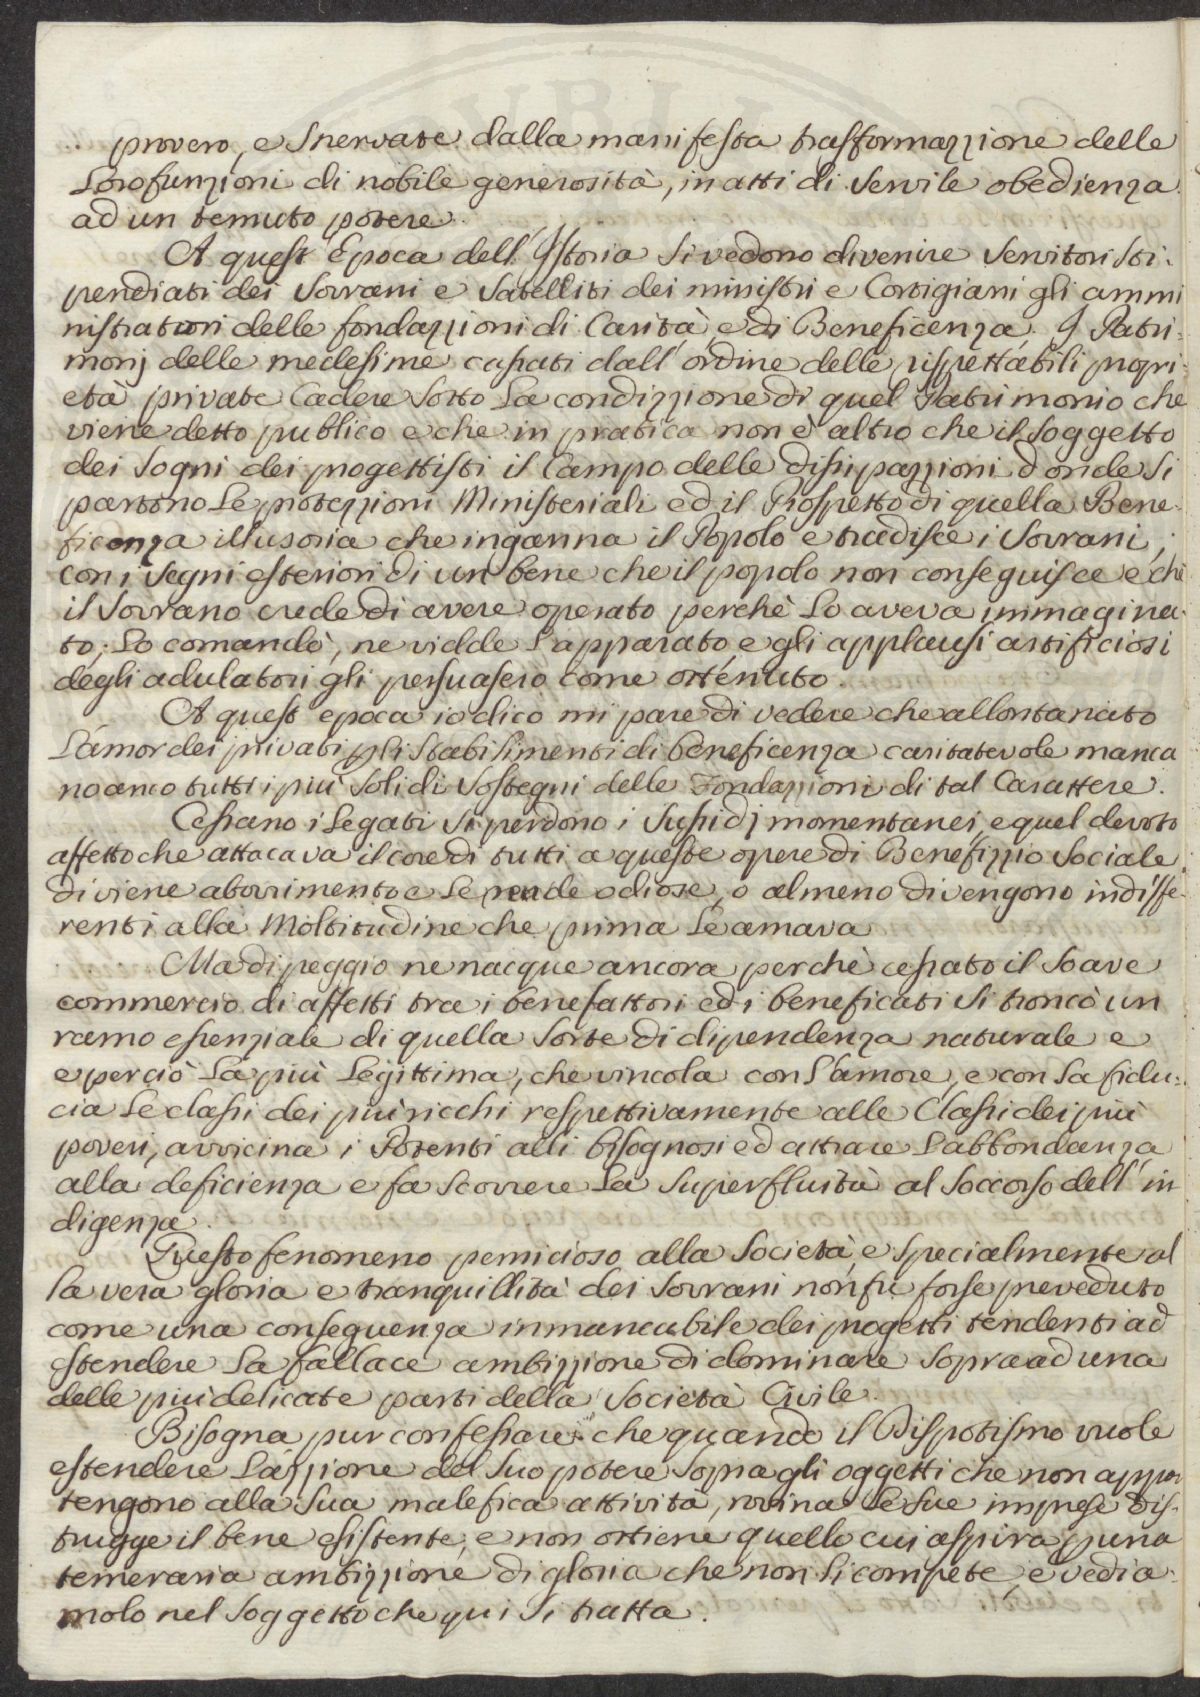 provero, e snervate dalla manifesta trasformazzione delle
Loro funzioni di nobile generosità, in atti di servile obedienza
ad un temuto potere.
A quest'Epoca dell'Istoria si vedono divenire servitori sti-
pendiati dei sovrani e satelliti dei ministri e Cortigiani gli ammi
nistratori delle fondazzioni di Carità, e di Beneficenza. I Patri-
monj delle medesime cassati dall'ordine delle rispettabili propri-
età private Cadere sotto La condizzione di quel Patrimonio che
viene detto publico e che in pratica non è altro che il soggetto
dei sogni dei progettisti il Campo delle dissipazzioni d'onde si
partono Le protezzioni Ministeriali ed il Prospetto di quella Bene-
ficenza illusoria che inganna il Popolo e tradisce i Sovrani,
con i segni esteriori di un bene che il popolo non conseguisce e che
il Sovrano crede di avere operato perchè Lo aveva immagina-
to, Lo comandò, ne vidde L'apparato, e gli applausi artificiosi
degli adulatori gli persuasero come ottenuto.
A quest'epoca io dico mi pare di vedere che allontanato
L'amor dei privati p gli stabilimenti di beneficenza caritatevole manca
no anco tutti i più solidi sostegni delle Fondazzioni di tal Carattere.
Cessano i Legati si perdono i sussidj momentanei, e quel devoto
affetto che attacava il core di tutti a queste opere di Benefizzio sociale
diviene aborrimento e Le rende odiose, o almeno divengono indiffe-
renti alla Moltitudine che prima Le amava
Ma di peggio ne nacque ancora perchè cessato il soave
commercio di affetti tra i benefattori ed i beneficati si troncò un
ramo essenziale di quella sorte di dipendenza naturale e
e perciò La più Legittima, che vincola con L'amore, e con La fidu-
cia Le classi dei più ricchi respettivamente alle Classi dei più
poveri, avvicina i Potenti alli bisognosi ed attrae L'abbondanza
alla deficienza e fa scorrere La superfluità al soccorso dell'in
digenza.
Questo fenomeno pernicioso alla Società, e specialmente al
la vera gloria e tranquillità dei Sovrani non fu forse preveduto
come una conseguenza immancabile dei progetti tendenti ad
estendere La fallace ambizzione di dominare sopra ad una
delle più delicate parti della Società Civile.
Bisogna pur confessare che quando il Dispotismo vuole
estendere L'azzione del suo potere sopra gli oggetti che non appar
tengono alla sua malefica attività, rovina Le sue imprese dis-
trugge il bene esistente, e non ottiene quello cui aspira p una
temeraria ambizzione di gloria che non li compete, e vedia-
molo nel soggetto che qui si tratta.